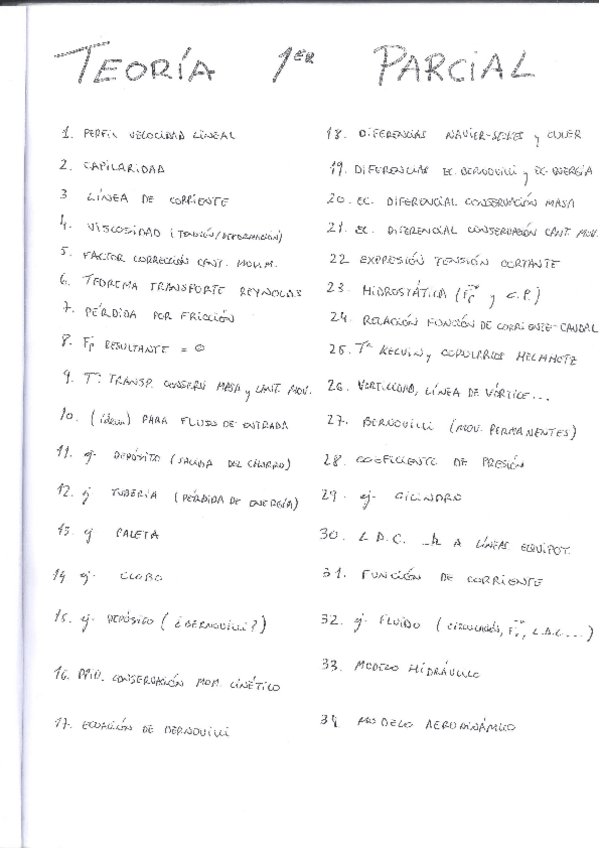 TEORÍA 1ER PARCIAL
1. PERFIL VELOCIDAD LINEAL
2. CAPILARIDAD
3 LÍNEA DE CORRIENTE
4. VISCOSIDAD (TENSIÓN/DEFORMACIÓN)
5. FACTOR CORRECCIÓN CANT. MOVIM.
6. TEOREMA TRANSPORTE REYNOLDS
7. PÉRDIDA POR FRICCIÓN
8. Fp RESULTANTE = 0
9. Tª TRANSP. CONSERV MASA y CANT. MOV.
10. (idem) PARA FLUJO DE ENTRADA
11. ej. DEPÓSITO (SALIDA DEL CHORRO)
12. ej TUBERIA (PÉRDIDA DE ENERGÍA)
13. ej PALETA
14 ej. GLOBO
15. ej. DEPÓSITO (¿BERNOUILLI?)
16. PPIO. CONSERVACIÓN MOM. CINÉTICO
17. ECUACIÓN DE BERNOUILLI
18. DIFERENCIAS NAVIER-STOKES y EULER
19. DIFERENCIAS EC. BERNOUILLI y EC. ENERGÍA
20. EC. DIFERENCIAL CONSERVACIÓN MASA
21. EC. DIFERENCIAL CONSERVACIÓN CANT. MOV.
22 EXPRESIÓN TENSIÓN CORTANTE
23. HIDROSTÁTICA (Fp y C.P.)
24. RELACIÓN FUNCIÓN DE CORRIENTE-CAUDAL
25. Tª KELVIN y COROLARIOS HELMHOTZ
26. VORTICIDAD, LÍNEA DE VÓRTICE...
27. BERNOUILLI (MOV. PERMANENTES)
28. COEFICIENTE DE PRESIÓN
29. ej. CILINDRO
30. L.D.C. ⊥ A LÍNEAS EQUIPOT.
31. FUNCIÓN DE CORRIENTE
32. ej. FLUIDO (CIRCULACIÓN, L.D.C...)
33. MODELO HIDRÁULICO
34 MODELO AERODINÁMICO